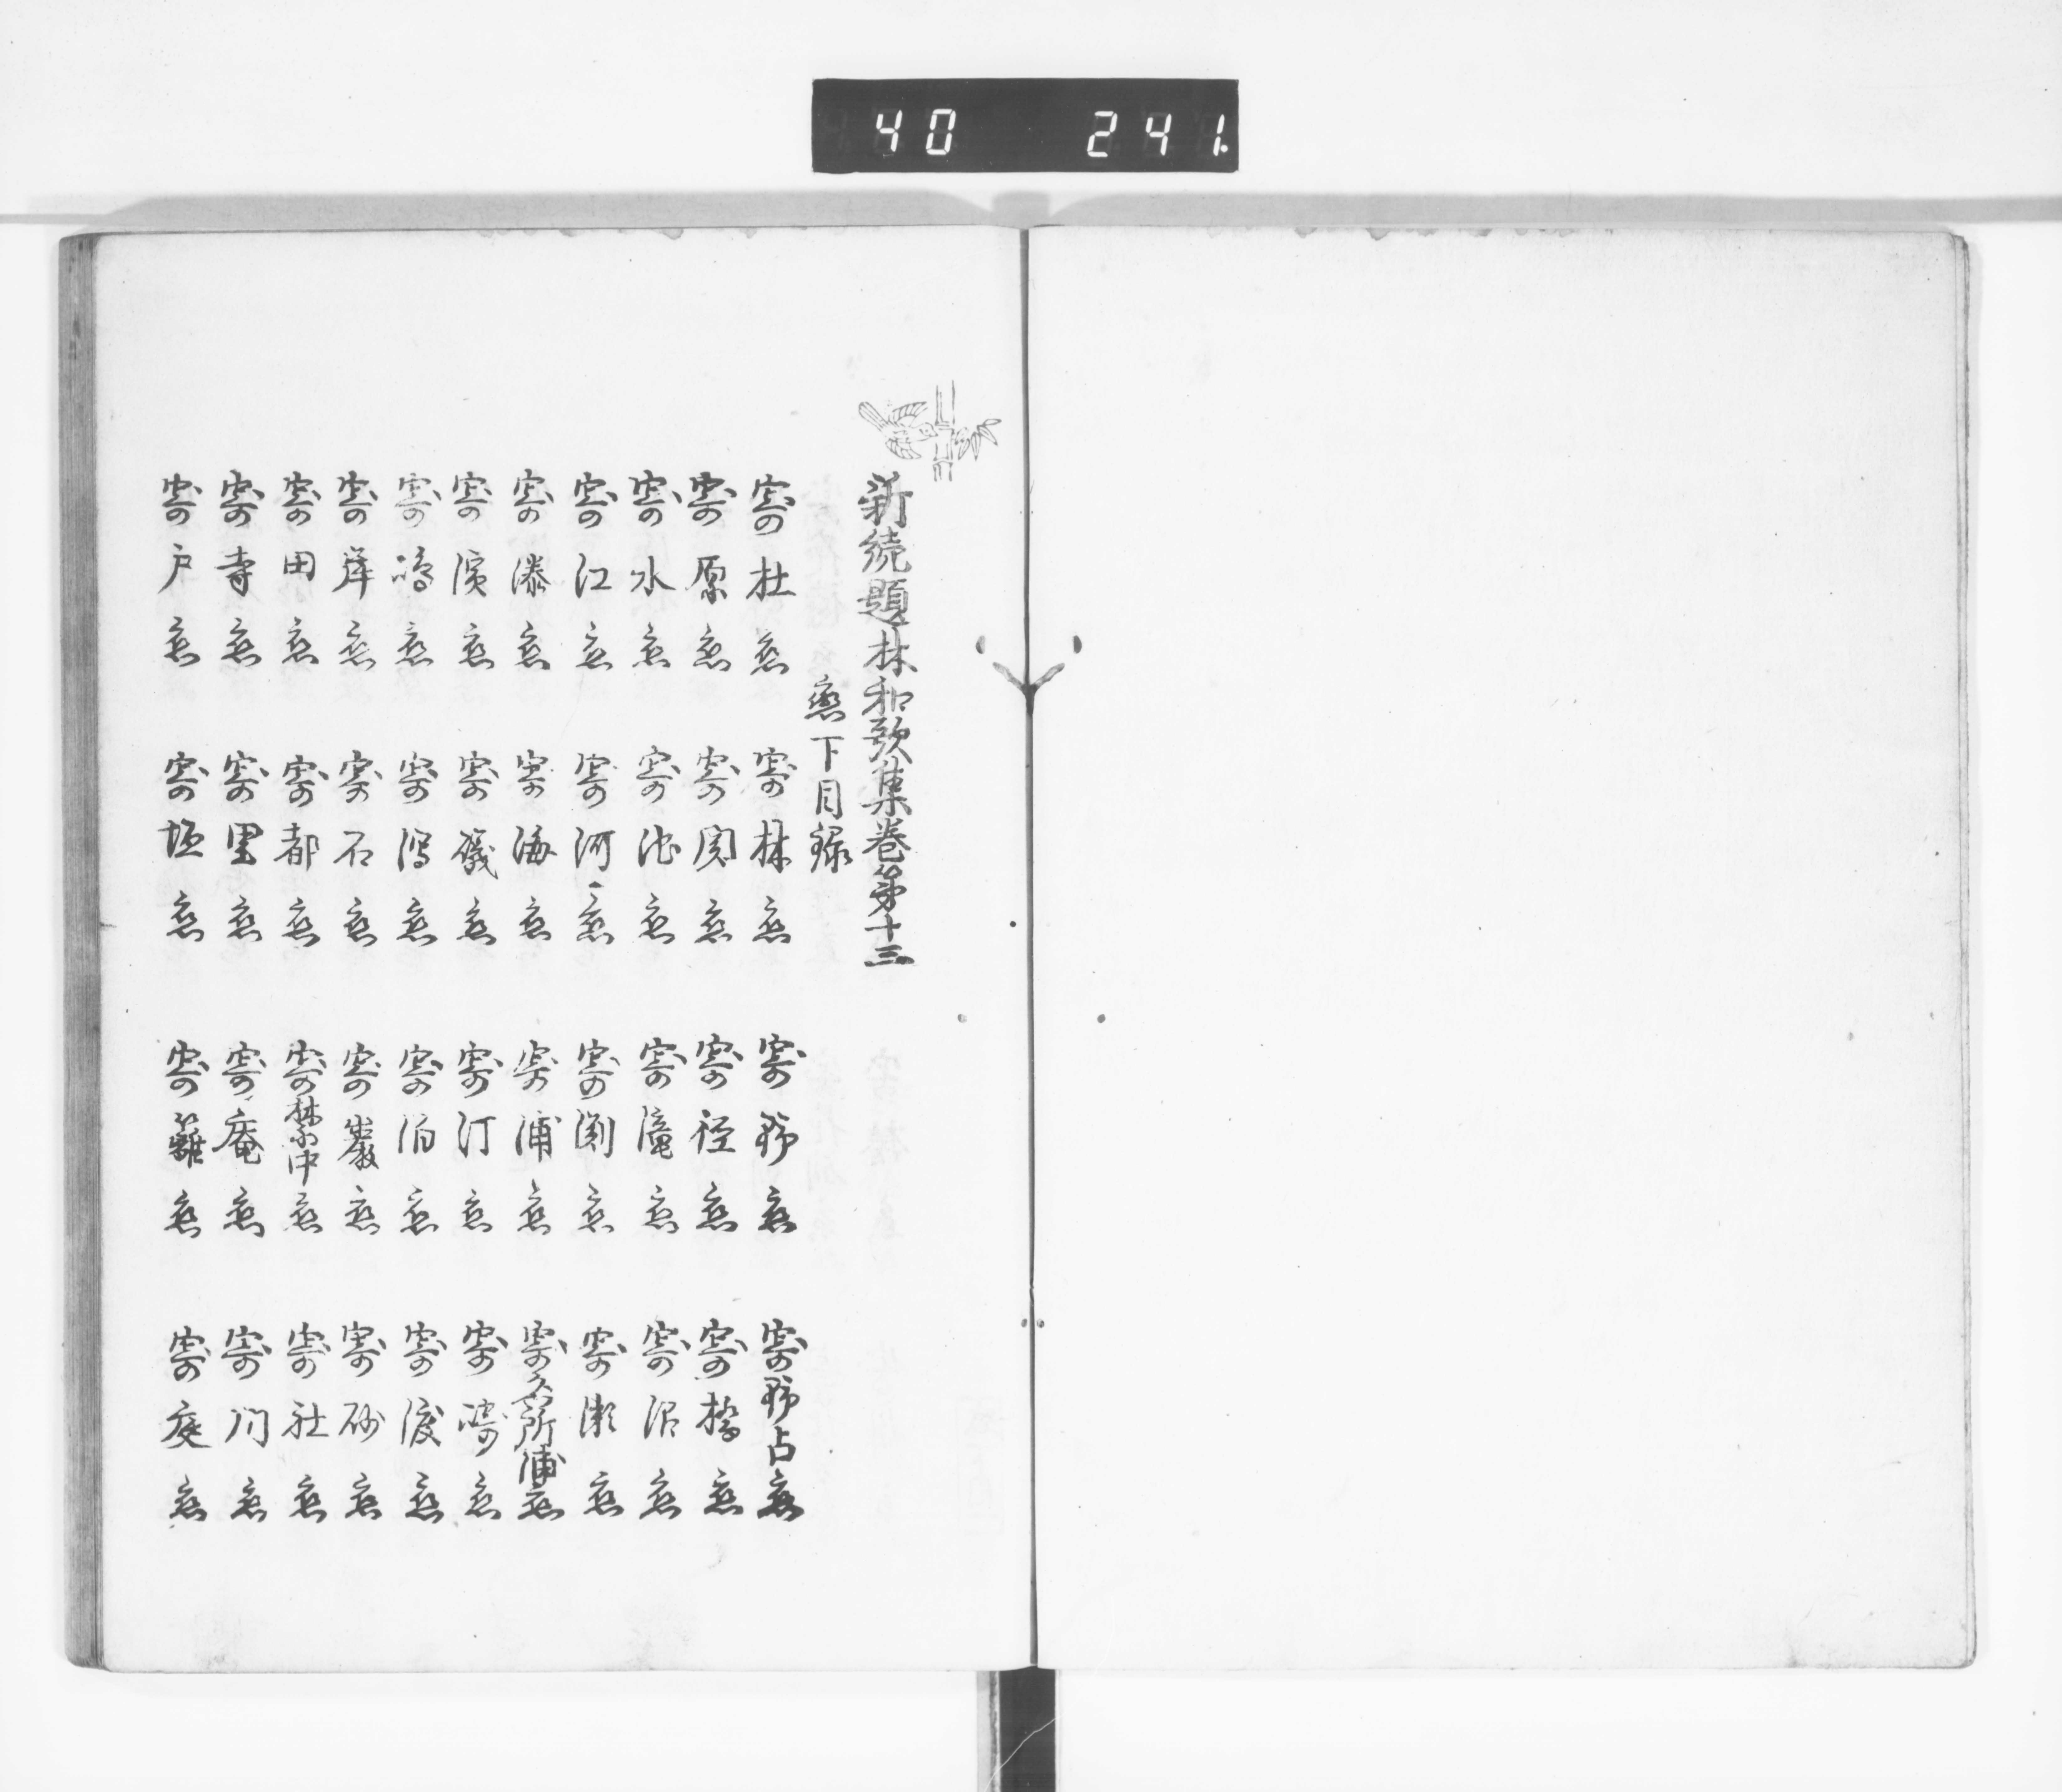 40 241
新続題林和歌集巻第十三
戀下目録
寄杜恋 寄林恋 寄野恋 寄野占恋
寄原恋 寄関恋 寄径恋 寄橋恋
寄水恋 寄池恋 寄滝恋 寄沼恋
寄江恋 寄河恋 寄淵恋 寄瀬恋
寄湊恋 寄海恋 寄浦恋 寄名所浦恋
寄濱恋 寄磯恋 寄汀恋 寄崎恋
寄嶋恋 寄潟恋 寄泊恋 寄渡恋
寄岸恋 寄石恋 寄巌恋 寄砂恋
寄田恋 寄都恋 寄禁中恋 寄社恋
寄寺恋 寄里恋 寄庵恋 寄門恋
寄戸恋 寄垣恋 寄籬恋 寄庭恋